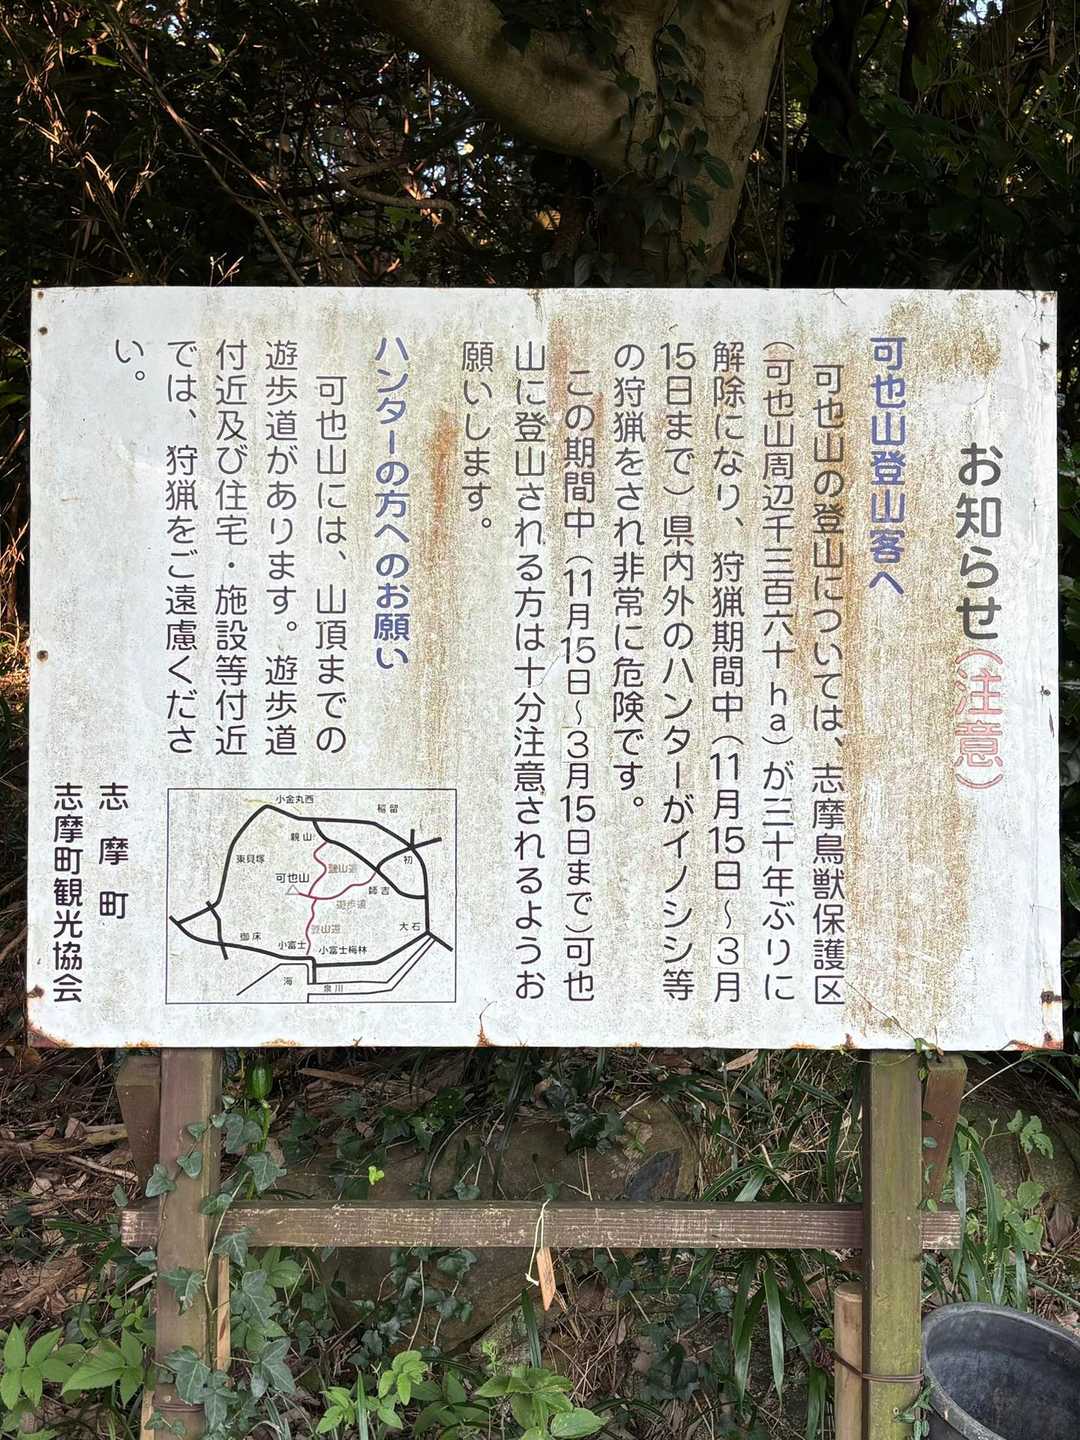 お知らせ（注意）
可也山登山客へ
可也山の登山については、志摩鳥獣保護区
（可也山周辺千三百六十ha）が三十年ぶりに
解除になり、狩猟期間中（11月15日～3月
15日まで）県内外のハンターがイノシシ等
の狩猟をされ非常に危険です。
この期間中（11月15日～3月15日まで）可也
山に登山される方は十分注意されるようお
願いします。
ハンターの方へのお願い
可也山には、山頂までの
遊歩道があります。遊歩道
付近及び住宅・施設等付近
では、狩猟をご遠慮くださ
い。
志摩町
志摩町観光協会
小金丸西
稲留
親山
初
東貝塚
登山道
可也山
師吉
遊歩道
登山道
大石
御床
小富士
小富士梅林
海
泉川